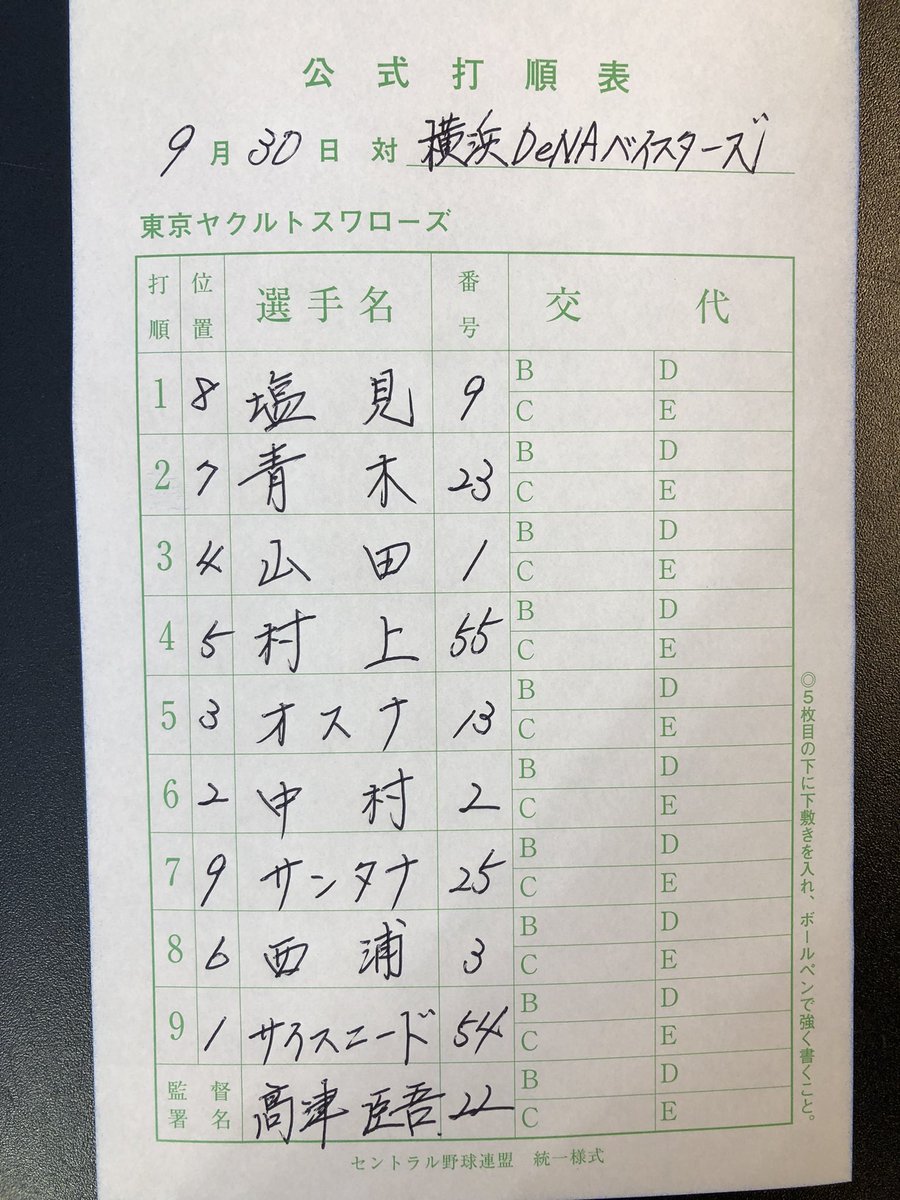 公式打順表
9月30日 対 横浜DeNAベイスターズ
東京ヤクルトスワローズ
打順 位置 選手名 番号 交代
1 8 塩見 9 B D
C E
2 7 青木 23 B D
C E
3 4 山田 1 B D
C E
4 5 村上 55 B D
C E
5 3 オスナ 13 B D
C E
6 2 中村 2 B D
C E
7 9 サンタナ 25 B D
C E
8 6 西浦 3 B D
C E
9 1 サイスニード 54 B D
C E
監督署名 高津臣吾 22 B D
C E
セントラル野球連盟 統一様式
◎5枚目の下に下敷きを入れ、ボールペンで強く書くこと。